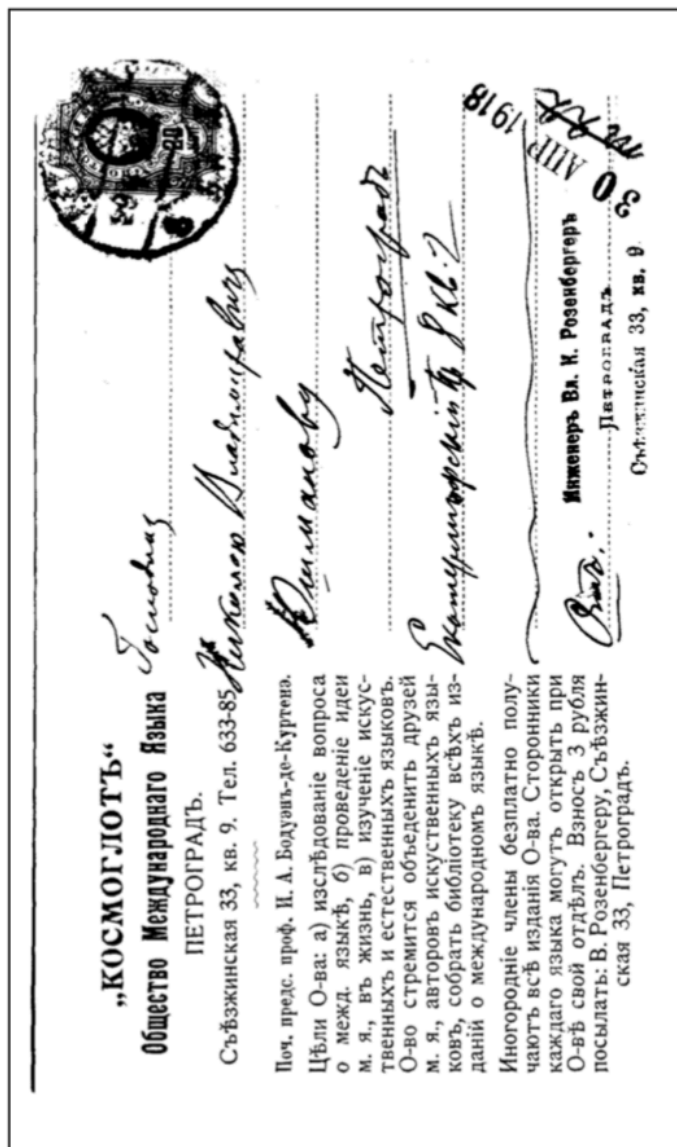 „КОСМОГЛОТЪ“
Общество Международнаго Языка
ПЕТРОГРАДЪ.
Съѣзжинская 33, кв. 9. Тел. 633-85
Поч. предс. проф. И. А. Бодуэнъ-де-Куртенэ.
Цѣли О-ва: а) изслѣдованіе вопроса
о межд. языкѣ, б) проведеніе идеи
м. я., въ жизнь, в) изученіе искус-
твенныхъ и естественныхъ языковъ.
О-во стремится объеденить друзей
м. я., авторовъ искуственныхъ язы-
ковъ, собрать библіотеку всѣхъ из-
даній о международномъ языкѣ.
Иногородніе члены безплатно полу-
чаютъ всѣ изданія О-ва. Сторонники
каждаго языка могутъ открыть при
О-вѣ свой отдѣлъ. Взносъ 3 рубля
посылать: В. Розенбергеру, Съѣзжин-
ская 33, Петроградъ.
Николаю Владимировичу
Юшманову
Петроградъ
8 кв. 2
30 АПР 1918
Инженеръ Вл. К. Розенбергеръ
Петроградъ
Съѣзжинская 33, кв. 9